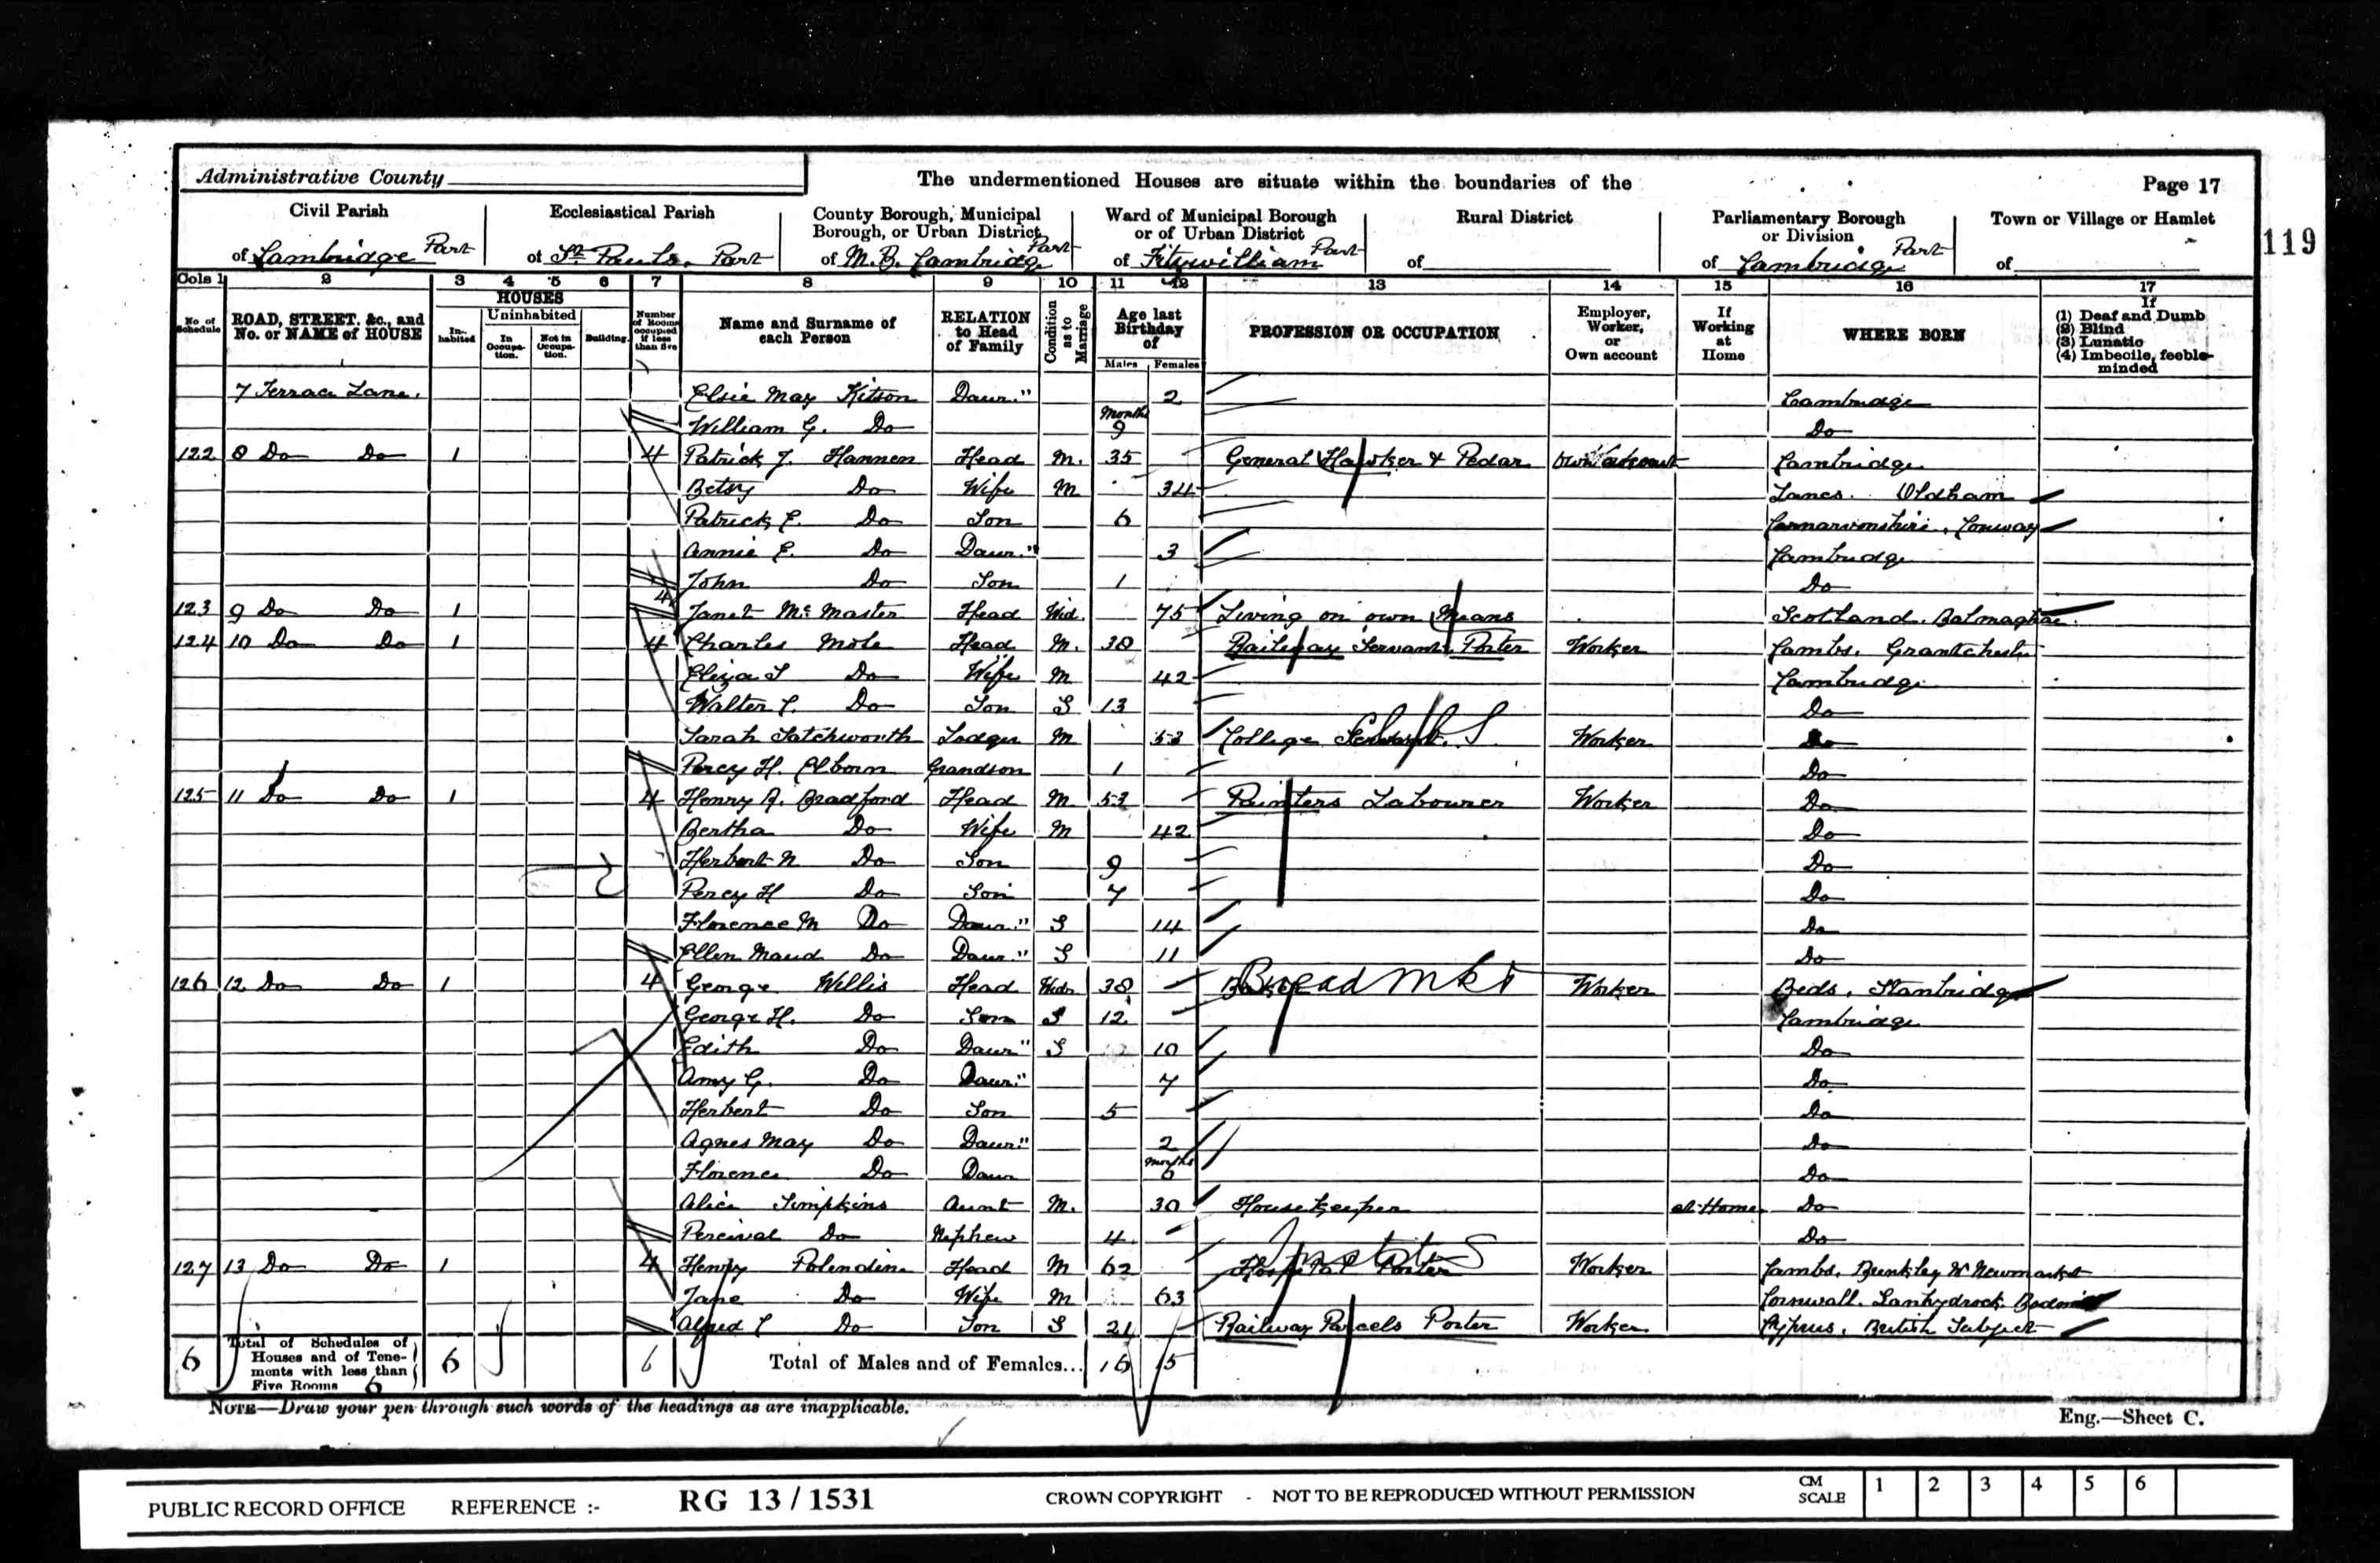 Administrative County
The undermentioned Houses are situate within the boundaries of the
Page 17
119
Civil Parish
of Cambridge Part
Ecclesiastical Parish
of St Pauls. Part
County Borough, Municipal
Borough, or Urban District
of M.B. Cambridge Part
Ward of Municipal Borough
or of Urban District
of Fitzwilliam Part
Rural District
of
Parliamentary Borough
or Division
of Cambridge Part
Town or Village or Hamlet
of
Cols 1 2 3 4 5 6 7 8 9 10 11 12 13 14 15 16 17
No of Schedule
ROAD, STREET, &c., and
No. or NAME of HOUSE
HOUSES
In-habited
Uninhabited
In Occupa-tion.
Not in Occupa-tion.
Building.
Number of Rooms occupied if less than five
Name and Surname of
each Person
RELATION
to Head
of Family
Condition as to Marriage
Age last
Birthday
of
Males Females
PROFESSION OR OCCUPATION
Employer,
Worker,
or
Own account
If
Working
at
Home
WHERE BORN
If
(1) Deaf and Dumb
(2) Blind
(3) Lunatic
(4) Imbecile, feeble-
minded
7 Terrace Lane. Elsie May Kitson Daur" 2 Cambridge
William G. Do Months 9 Do
122 8 Do Do 1 4 Patrick J. Hannen Head M. 35 General Hawker & Pedar Own Account Cambridge
Betsy Do Wife M 34 Lancs. Oldham
Patrick E. Do Son 6 Carnarvonshire, Conway
Annie E. Do Daur" 3 Cambridge
John Do Son 1 Do
123 9 Do Do 1 4 Janet McMaster Head Wid. 75 Living on own Means Scotland. Balmaghie
124 10 Do Do 1 4 Charles Mole Head M. 38 Railway Servant, Porter Worker Cambs. Grantchester
Eliza S Do Wife M 42 Cambridge
Walter C. Do Son S 13 Do
Sarah Satchworth Lodger M 53 College Servant. S Worker Do
Percy H. Elborn Grandson 1 Do
125 11 Do Do 1 4 Henry R. Bradford Head M 52 Painters Labourer Worker Do
Bertha Do Wife M 42 Do
Herbert N Do Son 9 Do
Percy H Do Son 7 Do
Florence M Do Daur" S 14 Do
Ellen Maud Do Daur" S 11 Do
126 12 Do Do 1 4 George Willis Head Widr 38 Baker Bread Mkr Worker Beds. Stanbridge
George H. Do Son S 12 Cambridge
Edith Do Daur" S 10 Do
Amy G. Do Daur" 7 Do
Herbert Do Son 5 Do
Agnes May Do Daur" 2 Do
Florence Do Daur Months 6 Do
Alice Simpkins Aunt M. 30 Housekeeper at Home Do
Percival Do Nephew 4 Do
127 13 Do Do 1 4 Henry Polendine Head M 62 Hospital Porter Worker Cambs. Brinkley Nr Newmarket
Jane Do Wife M 63 Cornwall. Lanhydrock. Bodmin
Alfred C Do Son S 21 Railway Parcels Porter Worker Cyprus. British Subject
6 Total of Schedules of
Houses and of Tene-
ments with less than
Five Rooms 6
6 6
Total of Males and of Females... 16 15
NOTE—Draw your pen through such words of the headings as are inapplicable.
Eng.—Sheet C.
PUBLIC RECORD OFFICE REFERENCE :- RG 13 / 1531 CROWN COPYRIGHT - NOT TO BE REPRODUCED WITHOUT PERMISSION
CM
SCALE
1 2 3 4 5 6